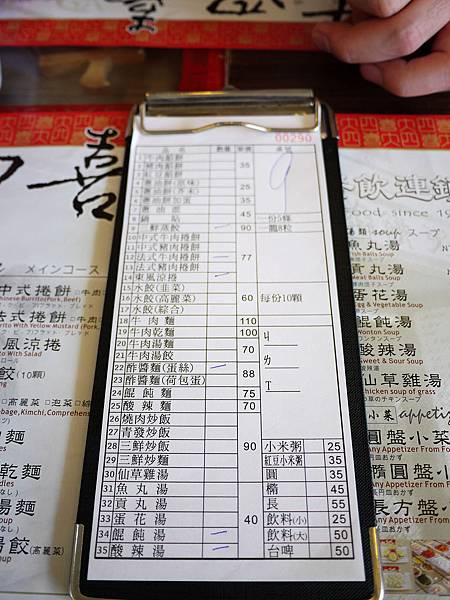 喜
00290
品 名 數量 單價 桌號
1 牛肉餡餅
2 豬肉餡餅 35
3 紅豆餡餅
4 蔥油餅(原味) 25
5 蔥油餅(芥末)
6 蔥油餅加蛋 35
7 蔥油派 45
8 鍋貼 一份5條
9 三鮮蒸餃 90 一籠8粒
10 中式牛肉捲餅
11 中式豬肉捲餅 77
12 法式牛肉捲餅
13 法式豬肉捲餅
14 東風涼捲
15 水餃(韭菜)
16 水餃(高麗菜) 60 每份10顆
17 水餃(綜合)
18 牛肉麵 110
19 牛肉乾麵 100 ㄐ
20 牛肉湯麵 70
21 牛肉湯餃 ㄌ
22 酢醬麵(蛋絲) 88
23 酢醬麵(荷包蛋) ㄒ
24 餛飩麵 75
25 酸辣麵 70
26 燒肉炒飯
27 青發炒飯
28 三鮮炒飯 90 小米粥 25
29 三鮮炒麵 紅豆小米粥 35
30 仙草雞湯 圓 35
31 魚丸湯 橢 45
32 貢丸湯 長 55
33 蛋花湯 40 飲料(小) 25
34 餛飩湯 飲料(大) 50
35 酸辣湯 台啤 50
9
メインコース
中式捲餅
法式捲餅
東風涼捲
with Salad
餃(10顆)
乾麵
湯麵
湯餃(高麗菜)
飲連鎖
Food since 19
湯類 soup スープ
魚丸湯
Fish Balls Soup
貢丸湯
蛋花湯
餛飩湯
Wonton Soup
酸辣湯
Sweet & Sour Soup
仙草雞湯
小菜 appetiz
圓盤小菜
Any Appetizer From Fo
橢圓盤
Any Appetizer From
長方盤
Any Appetizer From